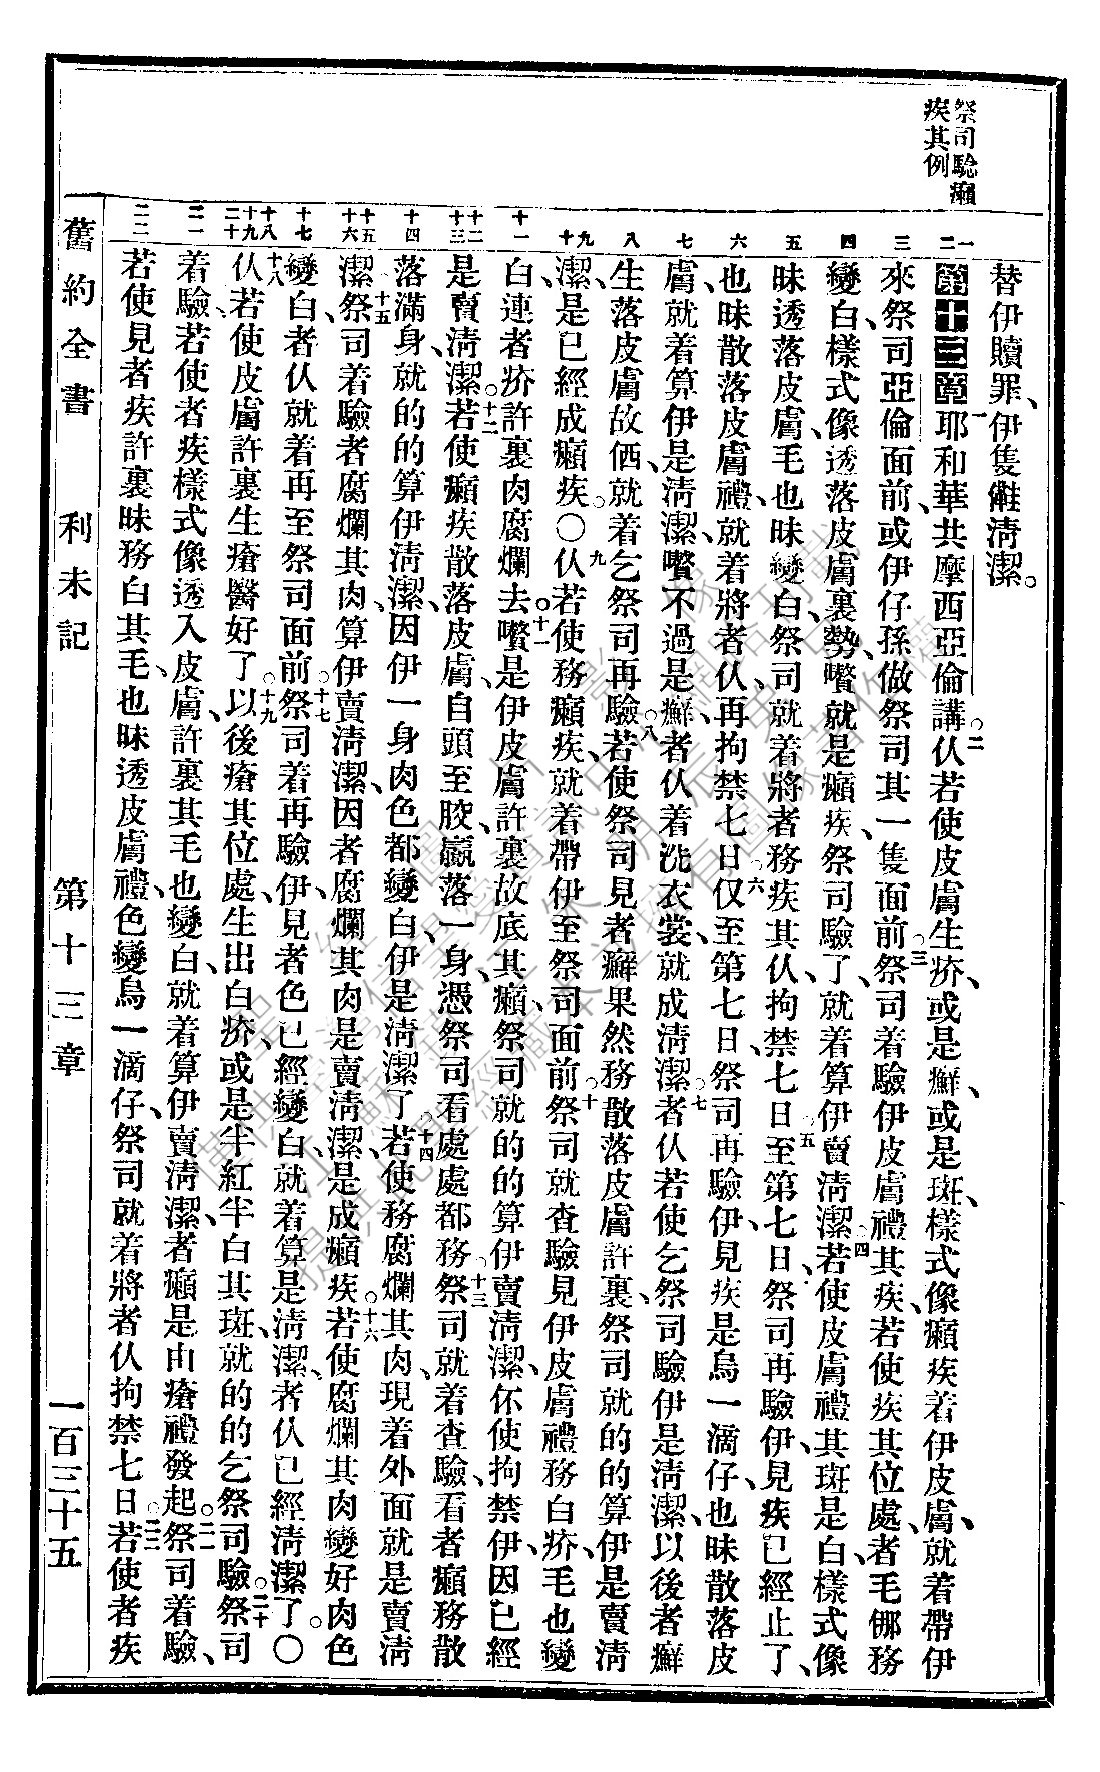 祭司騐癩
疾其例
替伊贖罪、伊隻雖淸潔。
第十三章一耶和華共摩西亞倫講、○二仈若使皮膚生疥、或是癬、或是斑、樣式像癩疾着伊皮膚、就着帶伊
來祭司亞倫面前、或伊仔孫做祭司其一隻面前、○三祭司着驗伊皮膚禮其疾、若使疾其位處、者毛㑚務
變白、樣式像透落皮膚裏勢、嚽就是癩疾、祭司驗了、就着算伊賣淸潔、○四若使皮膚禮其斑是白、樣式像
昧透落皮膚、毛也昧變白、祭司就着將者務疾其仈、拘禁七日、○五至第七日祭司再驗伊、見疾已經止了、
也昧散落皮膚禮、就着將者仈再拘禁七日、○六仅至第七日、祭司再驗伊、見疾是烏一滴仔、也昧散落皮
膚、就着算伊是淸潔、嚽不過是癬、者仈着洗衣裳、就成淸潔、○七者仈若使乞祭司驗伊是淸潔、以後者癬
生落皮膚故傌、就着乞祭司再驗、○八若使祭司見者癬果然務散落皮膚許裏、祭司就的的算伊是賣淸
潔、是已經成癩疾。○九仈若使務癩疾、就着帶伊至祭司面前、○十祭司就查驗見伊皮膚禮務白疥、毛也變
白、連者疥許裏肉腐爛去、○十一嚽是伊皮膚許裏故底其癩、祭司就的的算伊賣淸潔、伓使拘禁伊、因已經
是賣淸潔。○十二若使癩疾散落皮膚、自頭至骹、贏落一身、憑祭司看處處都務、○十三祭司就着查驗、看者癩務散
落滿身、就的的算伊淸潔、因伊一身肉色都變白、伊是淸潔了、○十四若使務腐爛其肉、現着外面就是賣淸
潔、○十五祭司着驗者腐爛其肉、算伊賣淸潔、因者腐爛其肉是賣淸潔、是成癩疾、○十六若使腐爛其肉變好肉色
變白者、仈就着再至祭司面前、○十七祭司着再驗伊、見者色已經變白、就着算是淸潔、者仈已經淸潔了。○
十八仈若使皮膚許裏生瘡醫好了、○十九以後瘡其位處、生出白疥、或是半紅半白其斑、就的的乞祭司驗、○二十祭司
着驗、若使者疾樣式像透入皮膚、許裏其毛也變白、就着算伊賣淸潔、者癩是由瘡禮發起、○二一祭司着驗、
若使見者疾許裏昧務白其毛、也昧透皮膚禮、色變烏一滴仔、祭司就着將者仈拘禁七日、○二二若使者疾
舊約全書 利未記 第十三章 一百三十五